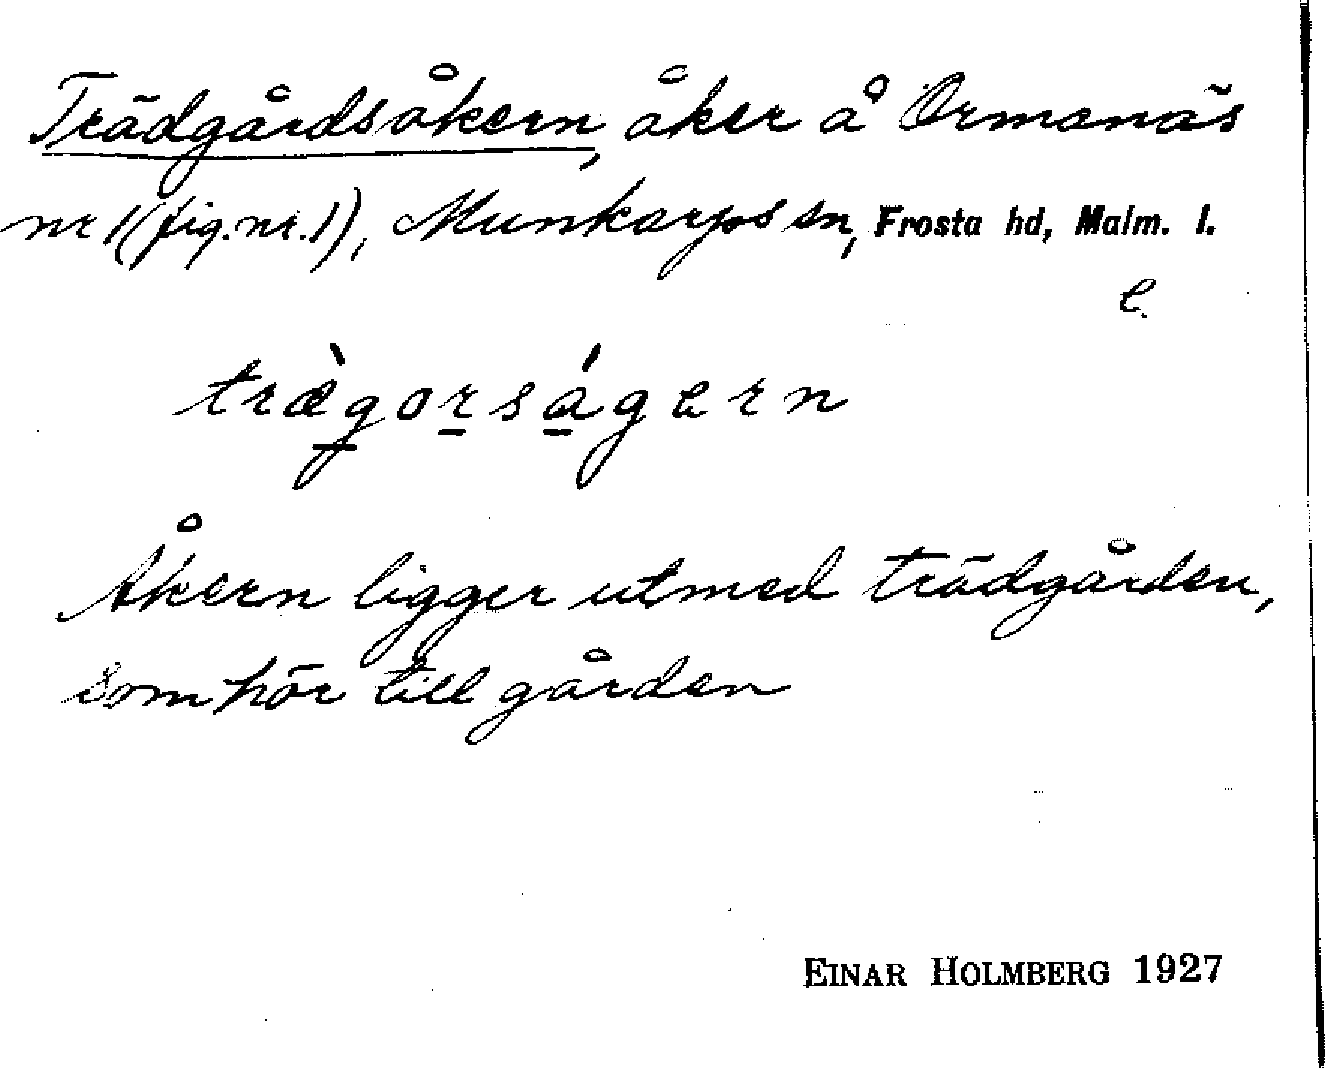 Trädgårdsåkern, åker å Ormanäs
nr 1 (fig. nr. 1), Munkarps sn, Frosta hd, Malm. l.
e.
træ̀gorságern
Åkern ligger utmed trädgården,
som hör till gården
EINAR HOLMBERG 1927